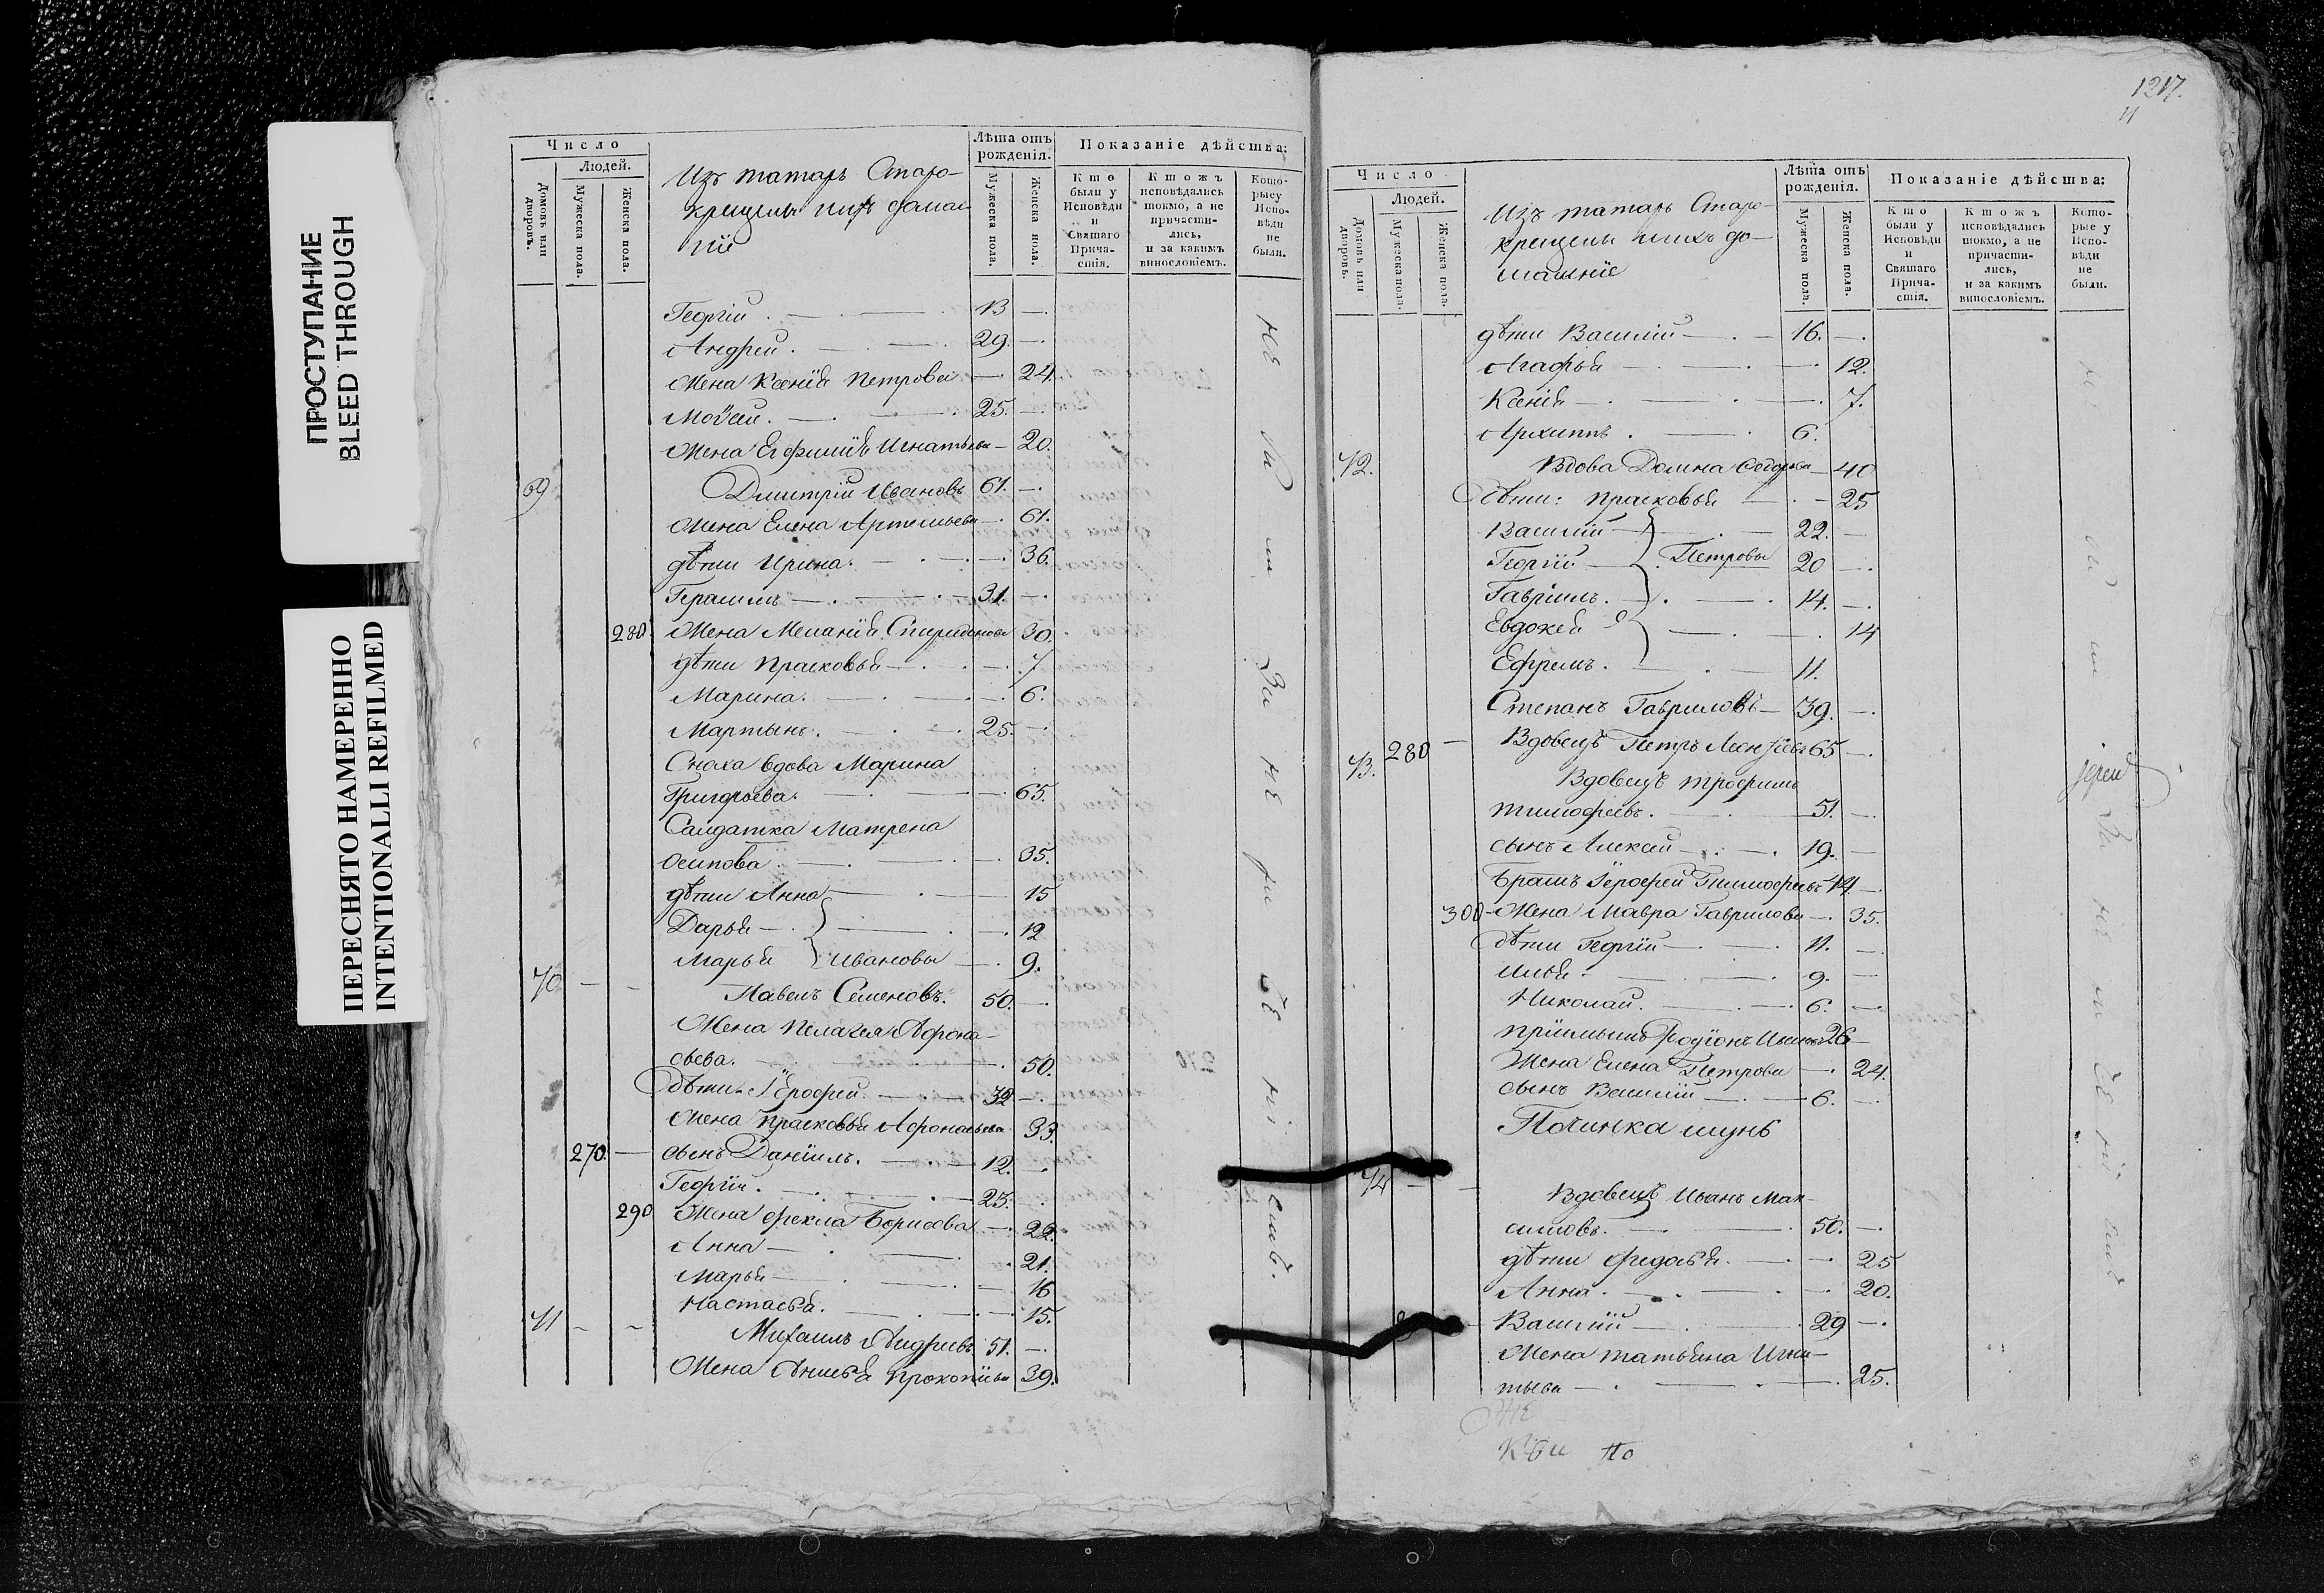 ПРОСТУПАНИЕ
BLEED THROUGH
ПЕРЕСНЯТО НАМЕРЕННО
INTENTIONALLI REFILMED
Число
Людей.
Домовъ или дворовъ.
Мужеска пола.
Женска пола.
Изъ татаръ Старо-
крещены
Лѣта отъ рожденія.
Мужеска пола.
Женска пола.
Показаніе дѣйства:
Кто были у Исповѣди и Святаго Прича-стія.
Ктожъ исповѣдались токмо, а не причасти-лись, и за какимъ винословіемъ.
Кото-рые у Испо-вѣди не были.
Георгій 13
Андрей 29.
Жена Ксенія Петрова 24.
Моѵсей 25.
Жена Ефимія Игнатьева 20.
69 Дмитрій Ивановъ 61.
Жена Елена Артемьева 61.
дѣти Ирина 36.
Герасимъ 31.
280 Жена Меланія Спиридонова 30.
дѣти Прасковья 7
Марина 6.
Мартынъ 25.
Сноха вдова Марина
Григорьева 65.
Салдатка Матрена
Осипова 35.
дѣти Анна 15
Дарья 12
Марья Ивановы 9.
70 Павелъ Семеновъ 50.
Жена Пелагея Афона-
сьева 50.
дѣти Іерофей 32
Жена Прасковья Афонасьева 33.
270. сынъ Даніилъ 12.
Георгій 25.
290 Жена Фекла Борисова 22.
Анна 21.
Марья 16
Настасья 15.
71 Михаилъ Андреевъ 51.
Жена Анисья Прокопьева 39.
1217.
Число
Людей.
Домовъ или дворовъ.
Мужеска пола.
Женска пола.
Изъ татаръ Старо-
крещены ихъ до-
машніе
Лѣта отъ рожденія.
Мужеска пола.
Женска пола.
Показаніе дѣйства:
Кто были у Исповѣди и Святаго Прича-стія.
Ктожъ исповѣдались токмо, а не причасти-лись, и за какимъ винословіемъ.
Кото-рые у Испо-вѣди не были.
дѣти Василій 16.
Агафья 12.
Ксенія 7.
Архиппъ 6.
72. Вдова Домна 40
дѣти: Прасковья 25
Василій 22.
Георгій Петровы 20
Гавріилъ 14.
Евдокея 14
Ефремъ 11.
Степанъ Гавриловъ 39.
280 Вдовецъ Петръ 65
73. Вдовецъ Трофимъ
Тимофеевъ 51.
сынъ Алексей 19.
Братъ Іерофей Тимофеевъ 44
300 Жена Мавра Гаврилова 35.
дѣти Георгій 11.
Илья 9.
Николай 6.
пріимышъ Родіонъ 26
Жена Елена Петрова 24.
сынъ Василій 6.
Починка
74 Вдовецъ Иванъ Мак-
симовъ 50.
дѣти Федосья 25
Анна 20.
Василій 29
Жена Татьяна Игна-
тьева 25.